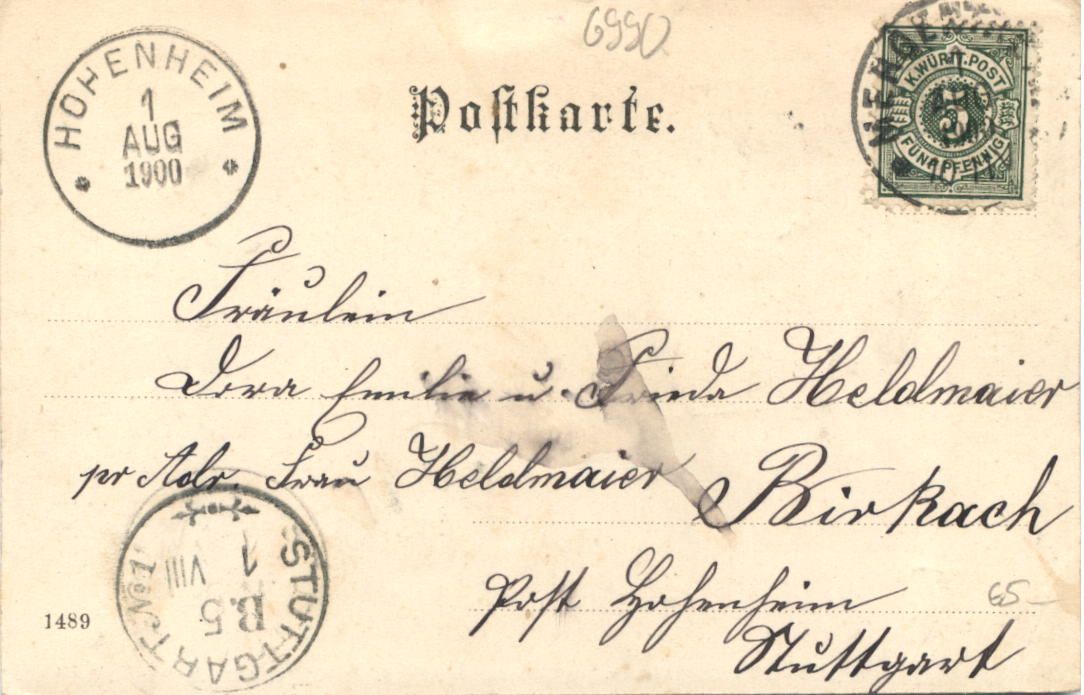 6990
HOHENHEIM
1
AUG
1900
Postkarte.
MERGE
K.WÜRTT.POST
5
FÜNF PFENNIG
Fräulein
Dora Emilie u. Frieda Heldmaier
pr Adr. Frau Heldmaier
Birkach
Post Hohenheim
Stuttgart
65-
1489
STUTTGART No 1
1 VIII
B.5